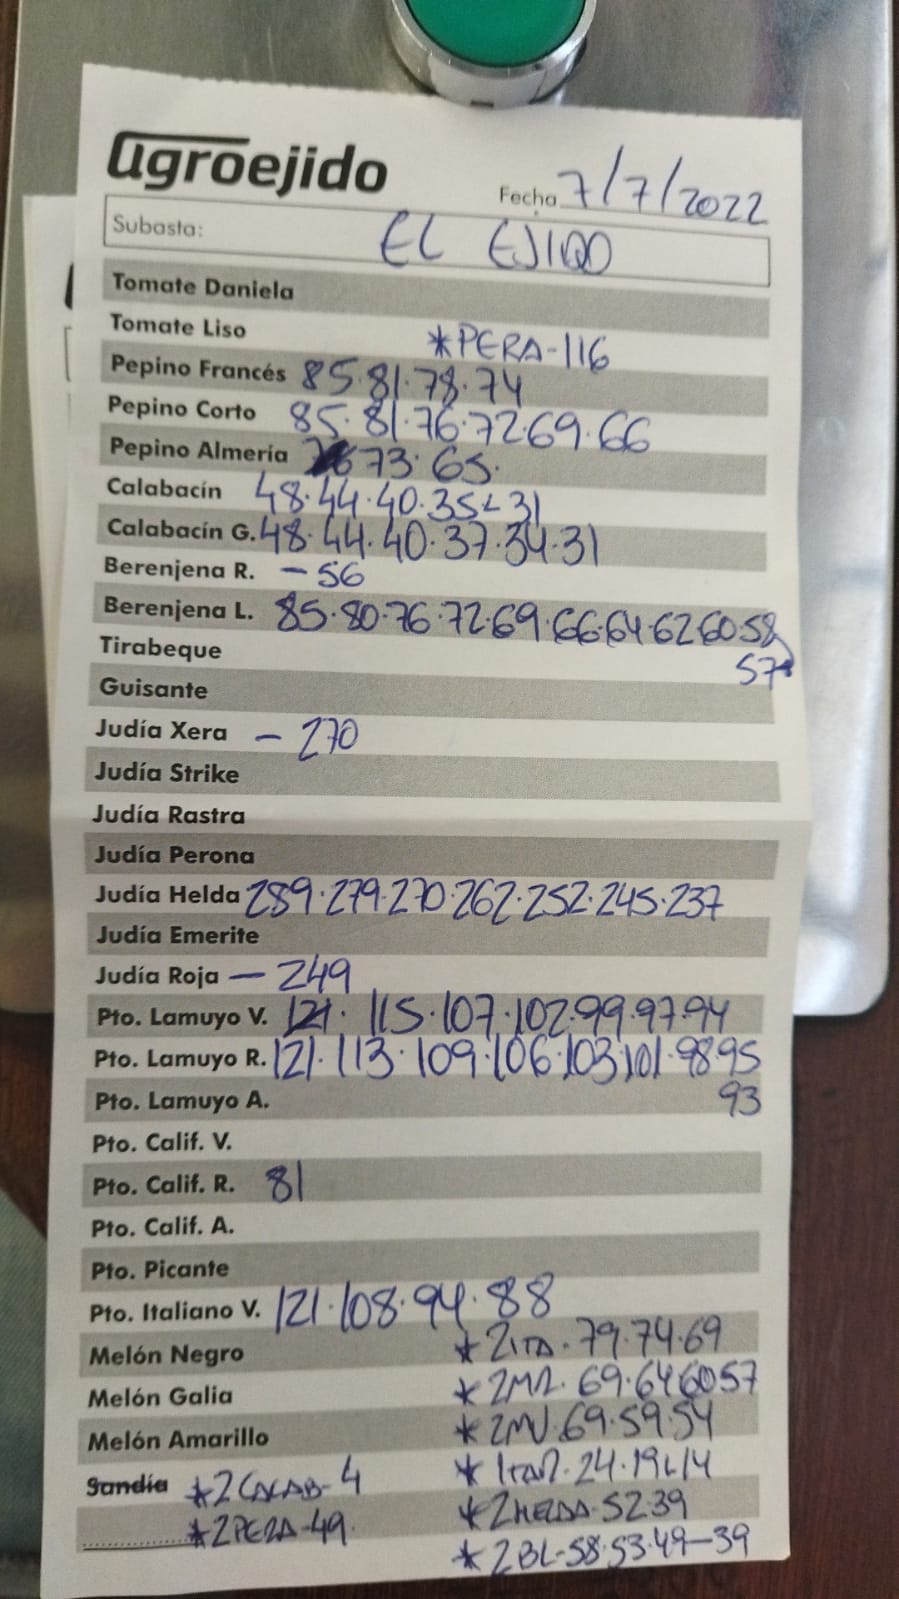 agroejido
Fecha 7/7/2022
Subasta: EL EJIDO
Tomate Daniela
Tomate Liso *PERA-116
Pepino Francés 85·81·78·74
Pepino Corto 85·81·76·72·69·66
Pepino Almería 73·65·
Calabacín 48·44·40·35L31
Calabacín G. 48·44·40·37·34·31
Berenjena R. -56
Berenjena L. 85·80·76·72·69·66·64·62·60·58
Tirabeque 57
Guisante
Judía Xera - 270
Judía Strike
Judía Rastra
Judía Perona
Judía Helda 289·279·270·262·252·245·237
Judía Emerite
Judía Roja - 249
Pto. Lamuyo V. 121·115·107·102·99·97·94
Pto. Lamuyo R. 121·113·109·106·103·101·98·95
Pto. Lamuyo A. 93
Pto. Calif. V.
Pto. Calif. R. 81
Pto. Calif. A.
Pto. Picante
Pto. Italiano V. 121·108·94·88
Melón Negro *2ITA·79·74·69
Melón Galia *2MR·69·64·60·57
Melón Amarillo *2MV·69·59·54
Sandía *2CALAB-4 *ITAR·24·19L14
*2PERA-49 *2HELDA-52·39
*2BL-58·53·49-39